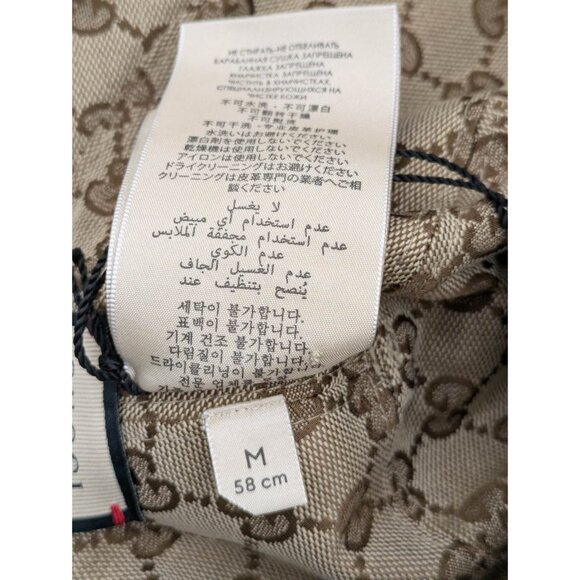 НЕ СТИРАТЬ-НЕ ОТБЕЛИВАТЬ
БАРАБАННАЯ СУШКА ЗАПРЕЩЕНА
ГЛАЖКА ЗАПРЕЩЕНА
ХИМЧИСТКА ЗАПРЕЩЕНА
ЧИСТИТЬ В ХИМЧИСТКАХ,
СПЕЦИАЛИЗИРУЮЩИХСЯ НА
ЧИСТКЕ КОЖИ
不可水洗·不可漂白
不可翻转干燥
不可熨烫
不可干洗·专业皮革护理
水洗いはお避けください
漂白剤を使用しないでください
乾燥機は使用しないでください
アイロンはお避けください
ドライクリーニングはお避けください
クリーニングは皮革専門の業者へご相
談ください
لا يغسل
عدم استخدام أي مبيض
عدم استخدام مجففة الملابس
عدم الكوي
عدم الغسيل الجاف
يُنصح بتنظيف عند
세탁이 불가합니다.
표백이 불가합니다.
기계 건조 불가합니다.
다림질이 불가합니다.
드라이클리닝이 불가합니다.
전문 업체로
M
58 cm